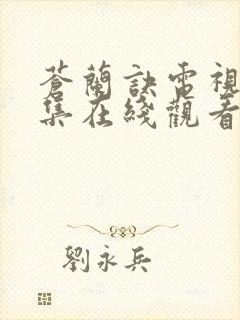 蒼蘭訣電視
集在綫觀看
劉永兵